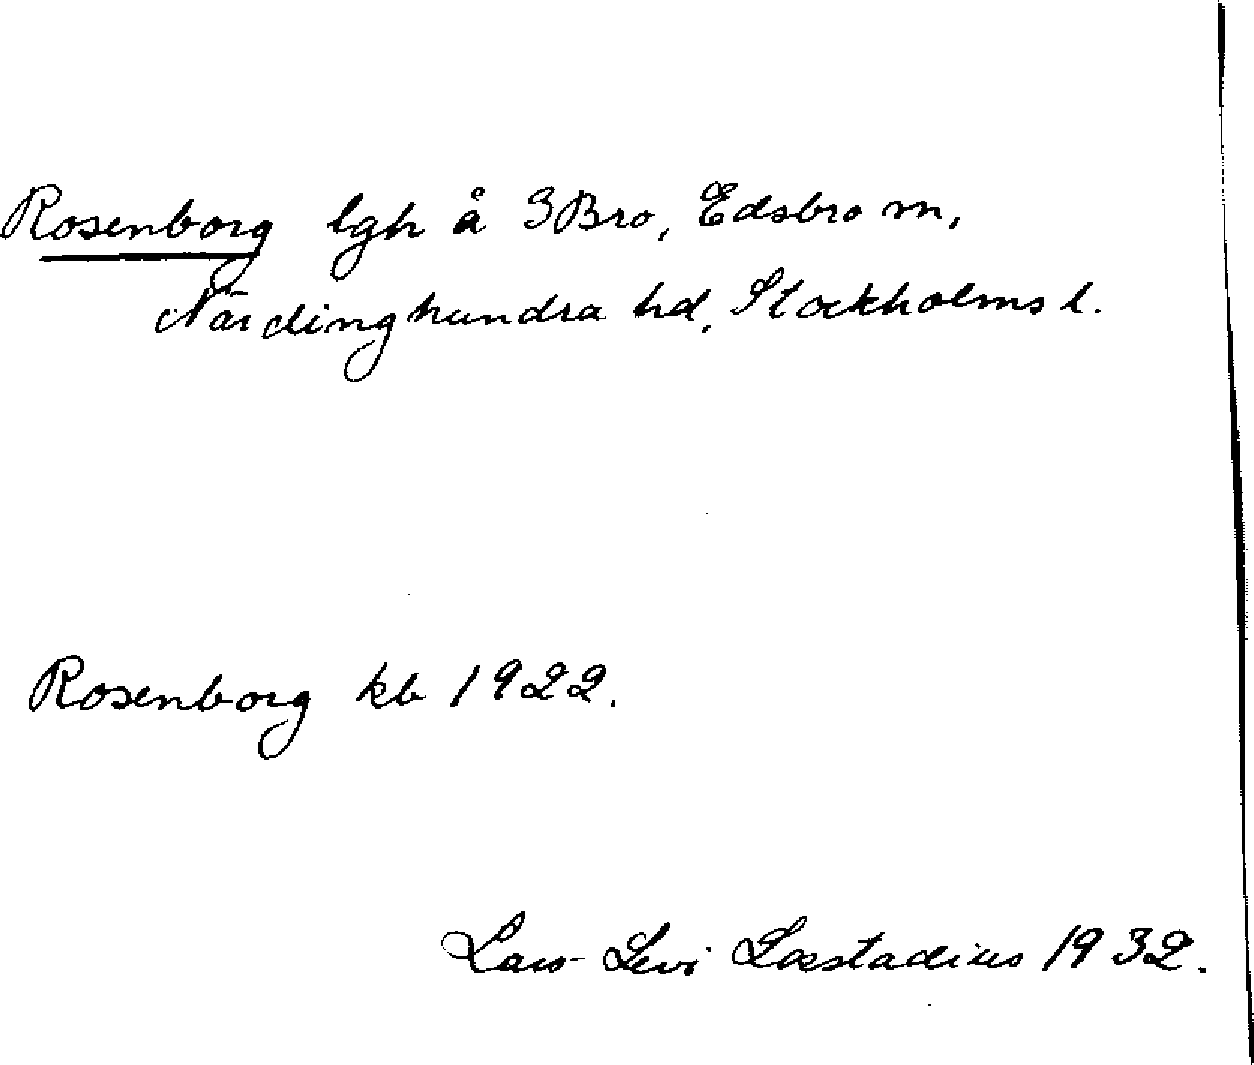 Rosenborg lgh å 3Bro, Edsbro m,
Närdinghundra hd, Stockholms l.
Rosenborg kb 1922.
Lars-Levi Læstadius 1932.